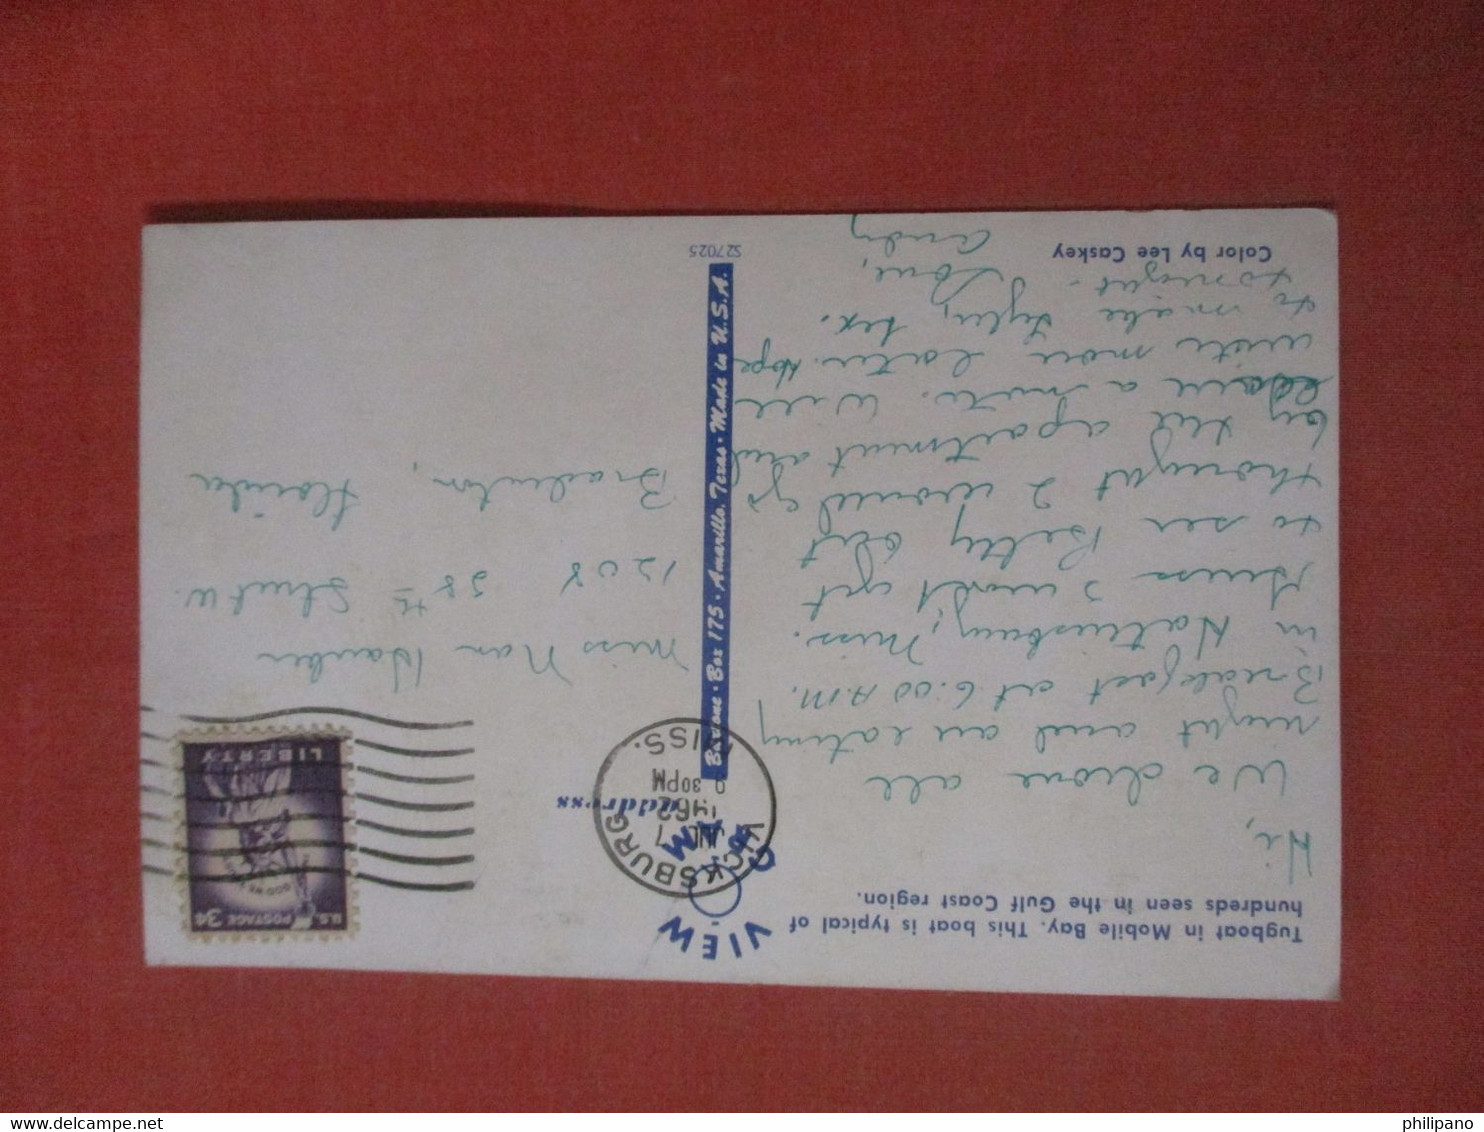 Tugboat in Mobile Bay. This boat is typical of
hundreds seen in the Gulf Coast region.
Hi,
We drove all
night and are eating
Breakfast at 6:00 A.M.
in Hattiesburg, Miss.
Guess I won't get
to see Betty Olit
thought I would go
by her apartment and
leave a note. Will
write more later. Hope
to make Tyler, Tex.
tonight.
Love,
Andy
Color by Lee Caskey
VIEW
COLOR
Baxtone · Box 175 · Amarillo, Texas · Made in U.S.A.
S27025
address
VICKSBURG
MISS.
JUL 7
9 30PM
1962
U.S. POSTAGE 3¢
IN GOD WE TRUST
LIBERTY
Miss Nan
1208 58th Street W.
Bradenton,
Florida
www.delcampe.net
philipano